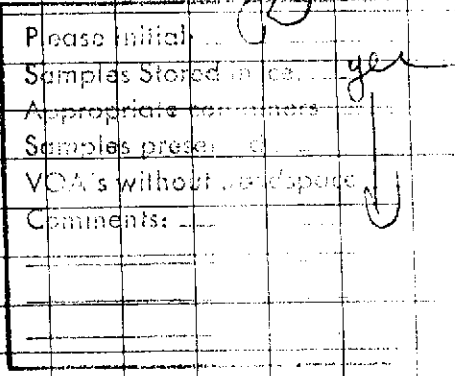 Please initial:
Samples Stored in ice. yes
Appropriate containers
Samples preserved
VOA's without headspace
Comments: